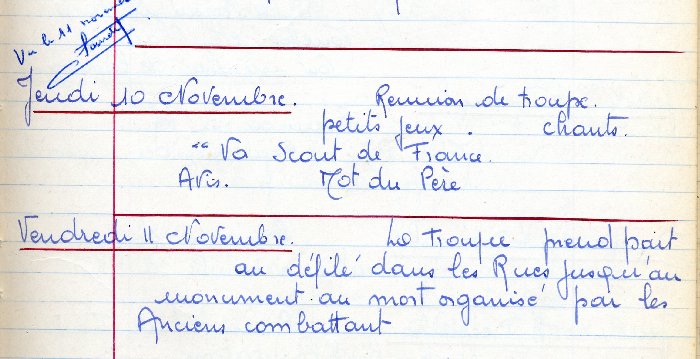 Vu le 11 novembre
Jeudi 10 Novembre. Reunion de troupe.
petits jeux. chants.
"Va Scout de France.
Avis. Mot du Père
Vendredi 11 Novembre. La troupe prend part
au défilé dans les Rues jusqu'au
monument au mort organisé par les
Anciens combattant